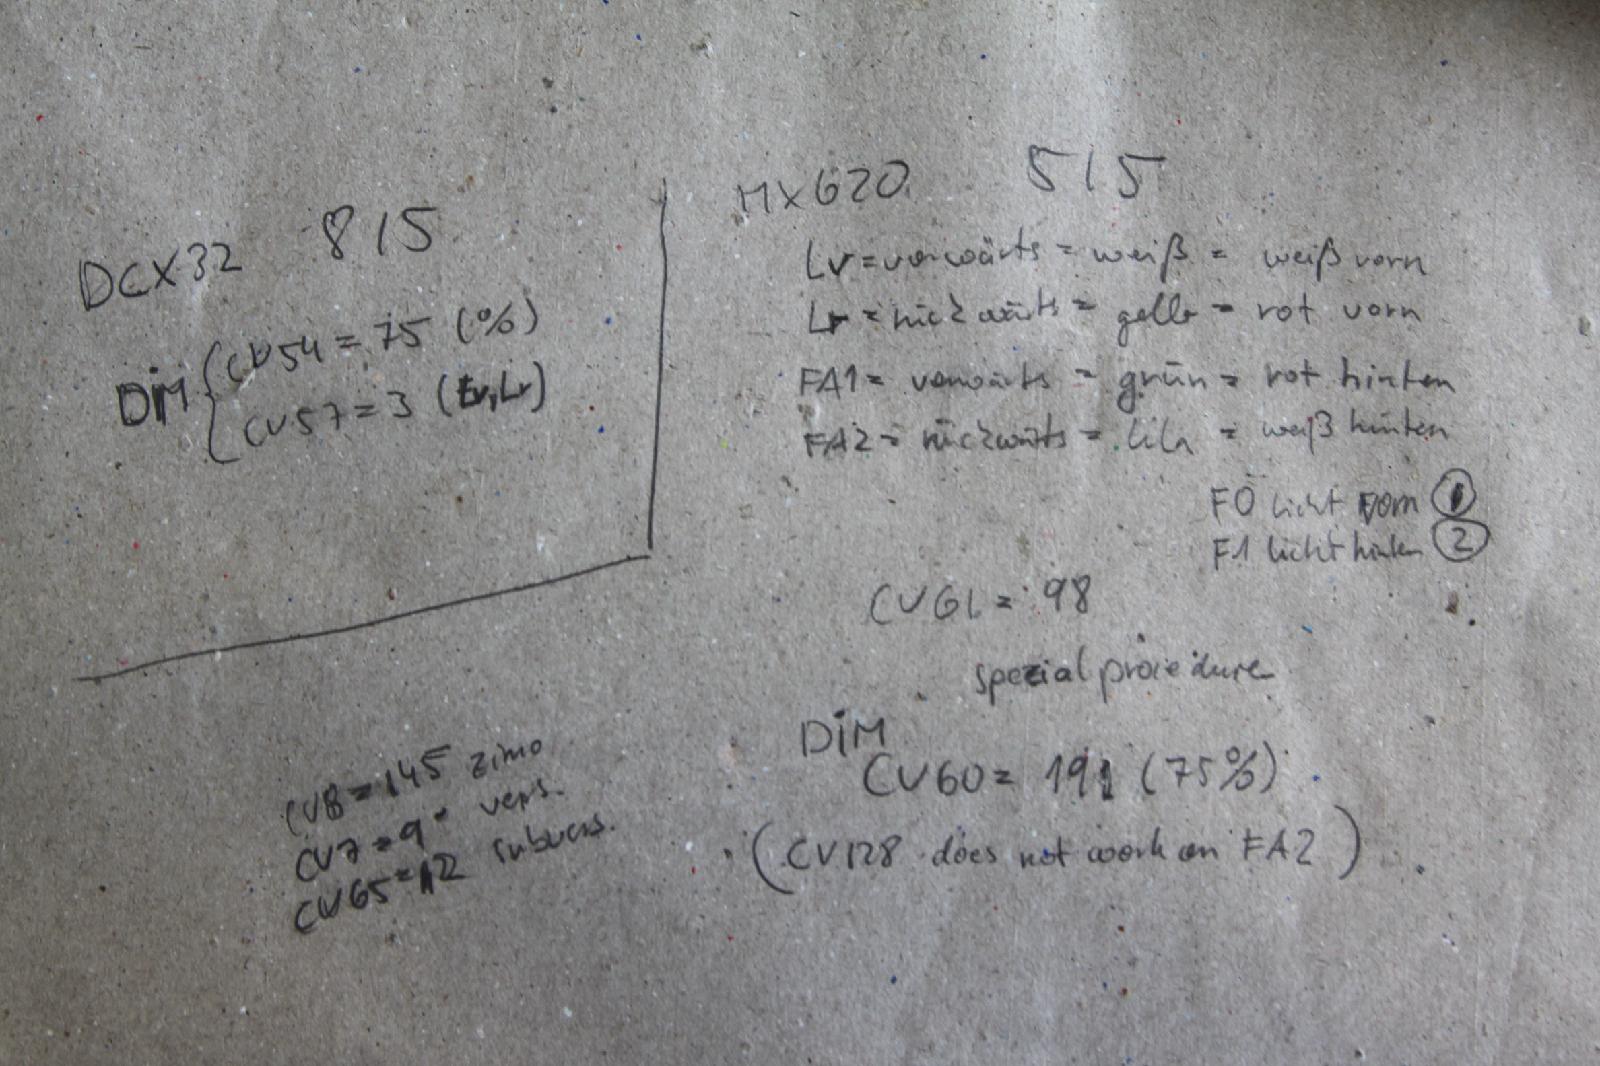 DCX32 815
DIM { CV54 = 75 (%)
CV57 = 3 (Lv, Lr)
MX620 515
Lv = vorwärts = weiß = weiß vorn
Lr = rückwärts = gelb = rot vorn
FA1 = vorwärts = grün = rot hinten
FA2 = rückwärts = lila = weiß hinten
F0 licht vorn 1
F1 licht hinten 2
CV61 = 98
spezial procedure
DIM
CV60 = 191 (75%)
(CV128 does not work on FA2)
CV8 = 145 zimo
CV7 = 9 vers.
CV65 = 12 subvers.